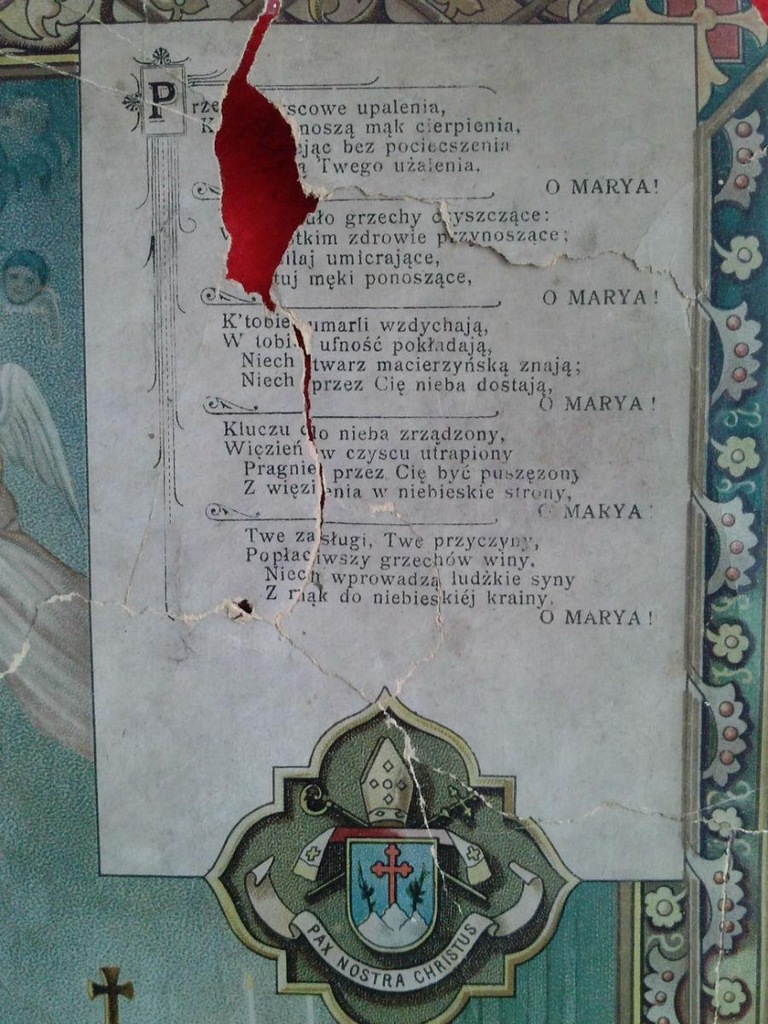 Prze scowe upalenia,
K noszą mąk cierpienia,
jąc bez pociecszenia
ą Twego użalenia.
O MARYA!
dło grzechy czyszczące:
tkim zdrowie przynoszące;
ilaj umierające,
tuj męki ponoszące,
O MARYA!
K'tobie umarli wzdychają,
W tobie ufność pokładają,
Niech twarz macierzyńską znają;
Niech przez Cię nieba dostają,
O MARYA!
Kluczu do nieba zrządzony,
Więzień w czyscu utrapiony
Pragnie przez Cię być puszęzony
Z więzienia w niebieskie strony,
O MARYA!
Twe zasługi, Twe przyczyny,
Popłaciwszy grzechów winy,
Niech wprowadzą ludźkie syny
Z mąk do niebieskiéj krainy,
O MARYA!
PAX NOSTRA CHRISTUS